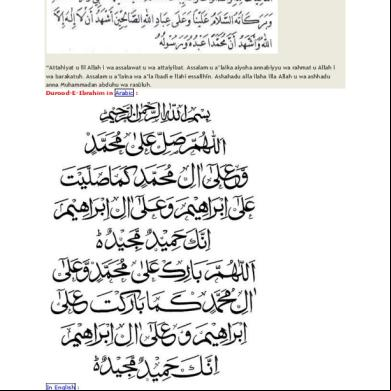 وَبَرَكَاتُهُ اَلسَّلَامُ عَلَيْنَا وَعَلٰى عِبَادِ اللهِ الصَّالِحِيْنَ اَشْهَدُ اَنْ لَا اِلٰهَ اِلَّا
اللهُ وَاَشْهَدُ اَنَّ مُحَمَّدًا عَبْدُهُ وَرَسُوْلُهُ
"Attahiyat u lil Allah i wa assalawat u wa attaiyibat. Assalam u a'laika aiyoha annabiyyu wa rahmat u Allah i
wa barakatuh. Assalam u a'laina wa a'la ibadi e llahi essalihin. Ashahadu alla ilaha illa Allah u wa ashhadu
anna Muhammadan abduhu wa rasuluh.
Durood-E-Ebrahim in Arabic :
بِسْمِ اللهِ الرَّحْمٰنِ الرَّحِيْمِ
اَللّٰهُمَّ صَلِّ عَلٰى مُحَمَّدٍ
وَّعَلٰى اٰلِ مُحَمَّدٍ كَمَا صَلَّيْتَ
عَلٰى اِبْرَاهِيْمَ وَعَلٰى اٰلِ اِبْرَاهِيْمَ
اِنَّكَ حَمِيْدٌ مَّجِيْدٌ
اَللّٰهُمَّ بَارِكْ عَلٰى مُحَمَّدٍ وَّعَلٰى
اٰلِ مُحَمَّدٍ كَمَا بَارَكْتَ عَلٰى
اِبْرَاهِيْمَ وَعَلٰى اٰلِ اِبْرَاهِيْمَ
اِنَّكَ حَمِيْدٌ مَّجِيْدٌ
In English :